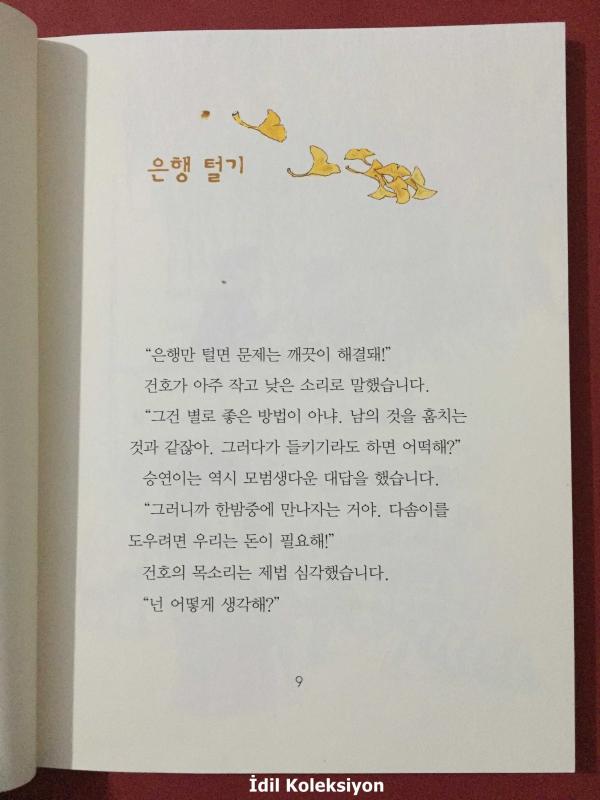 은행 털기
“은행만 털면 문제는 깨끗이 해결돼!”
건호가 아주 작고 낮은 소리로 말했습니다.
“그건 별로 좋은 방법이 아냐. 남의 것을 훔치는
것과 같잖아. 그러다가 들키기라도 하면 어떡해?”
승연이는 역시 모범생다운 대답을 했습니다.
“그러니까 한밤중에 만나자는 거야. 다솜이를
도우려면 우리는 돈이 필요해!”
건호의 목소리는 제법 심각했습니다.
“넌 어떻게 생각해?”
9
İdil Koleksiyon